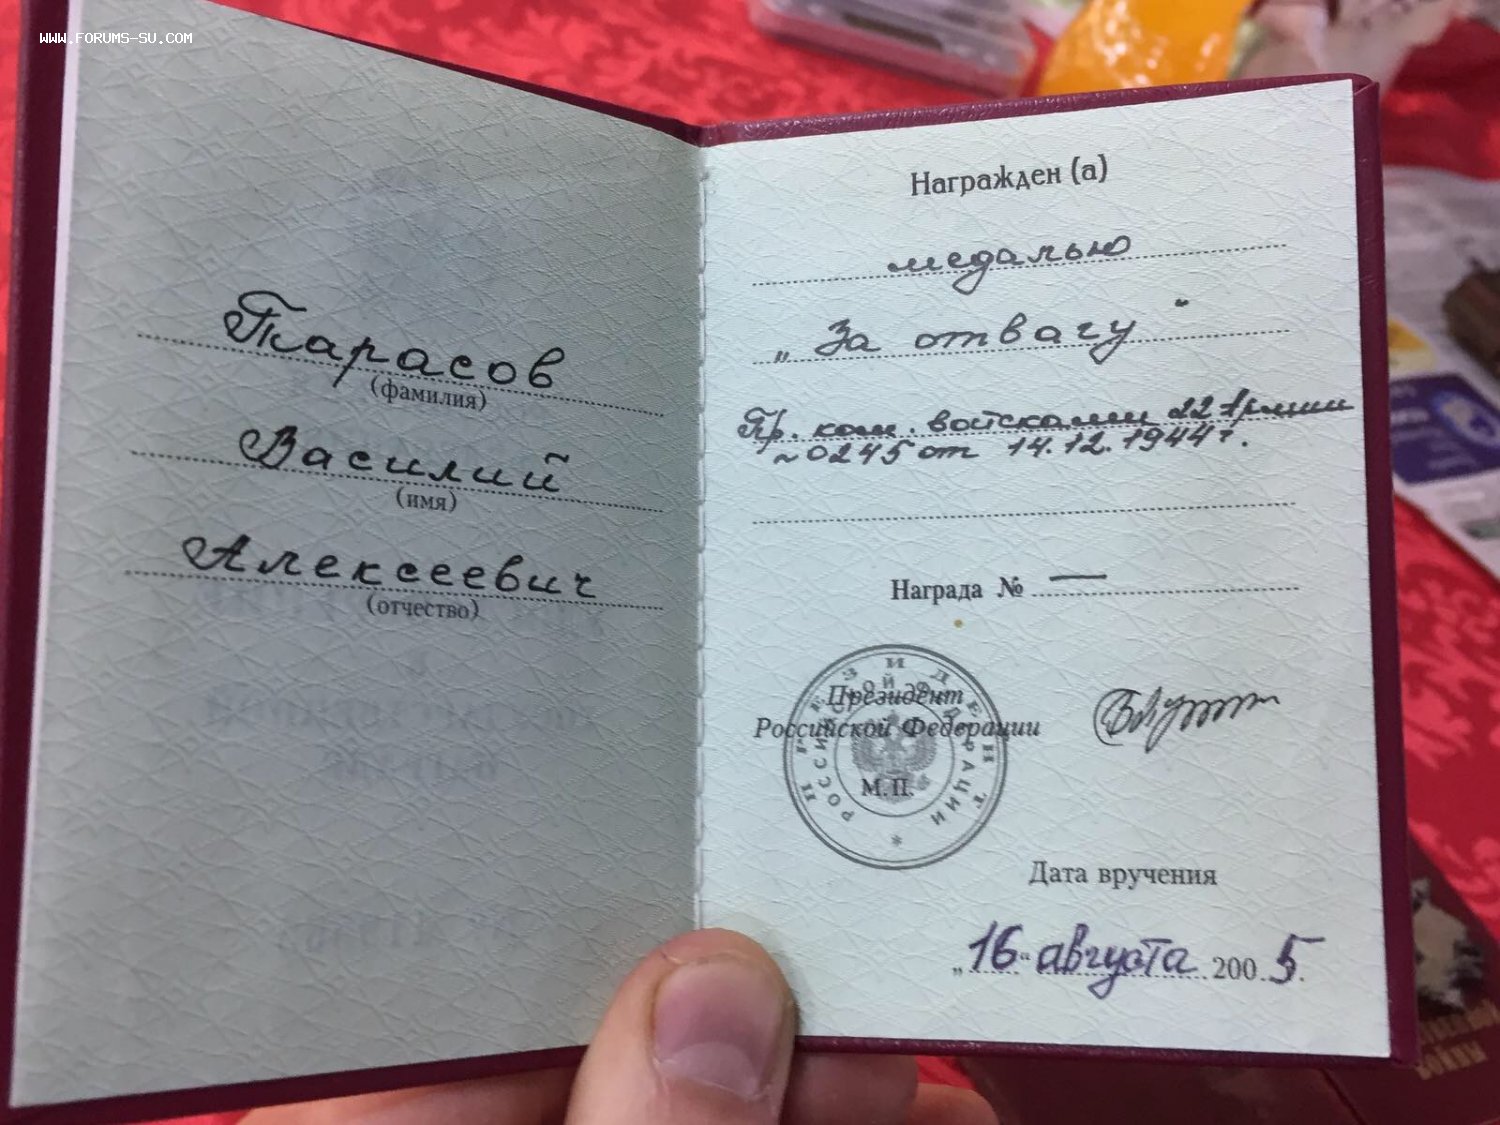 WWW.FORUMS-SU.COM
Тарасов
(фамилия)
Василий
(имя)
Алексеевич
(отчество)
Награжден (а)
медалью
„За отвагу"
Пр. ком. войсками 22 Армии
~0245 от 14.12.1944 г.
Награда № —
ПРЕЗИДЕНТ
РОССИЙСКОЙ ФЕДЕРАЦИИ
Президент
Российской Федерации
М.П.
Дата вручения
„16" августа 2005.
войны